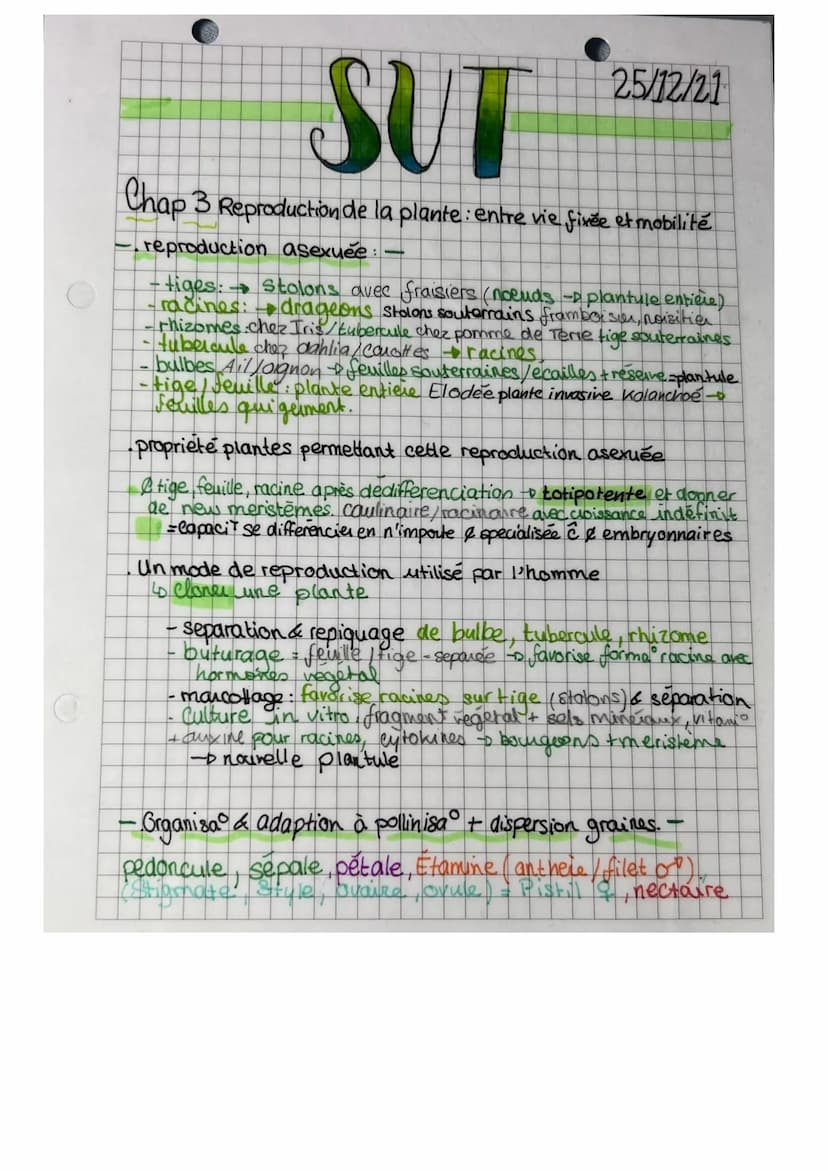 SVT
25/12/21
Chap 3 Reproduction de la plante : entre vie fixée et mobilité
- . reproduction asexuée : -
- tiges : → stolons avec fraisiers (noeuds → plantule entière)
- racines : → drageons stolons souterrains framboisier, noisitier
- rhizomes chez Iris / tubercule chez pomme de Terre tige souterraines
- tubercule chez dahlia / carottes → racines
- bulbes Ail / oignon → feuilles souterraines / écailles + réserve = plantule
- tige / feuille : plante entière Elodée plante invasive Kalanchoé →
feuilles qui germent.
. propriété plantes permettant cette reproduction asexuée
Ø tige, feuille, racine après dédifférenciation → totipotente et donner
de new meristèmes. caulinaire / racinaire avec croissance indéfinit
= capaciT se différencier en n'importe Ø specialisée ĉ Ø embryonnaires
. Un mode de reproduction utilisé par l'homme
↳ Cloner une plante
- separation & repiquage de bulbe, tubercule, rhizome
- buturage = feuille / tige - séparée → favorise forma° racine avec
hormones végétal
- marcottage : favorise racines sur tige (stolons) & séparation
- Culture in vitro : fragment végétal + sels minéraux, vitami°
+ auxine pour racines, cytokines → bourgeons + meristème
→ nouvelle plantule
- Organisa° & adaption à pollinisa° + dispersion graines. -
pedoncule, sépale, pétale, Étamine (antheie / filet ♂).
(Stigmate, Style, ovaire, ovule) = Pistil ♀, nectaire